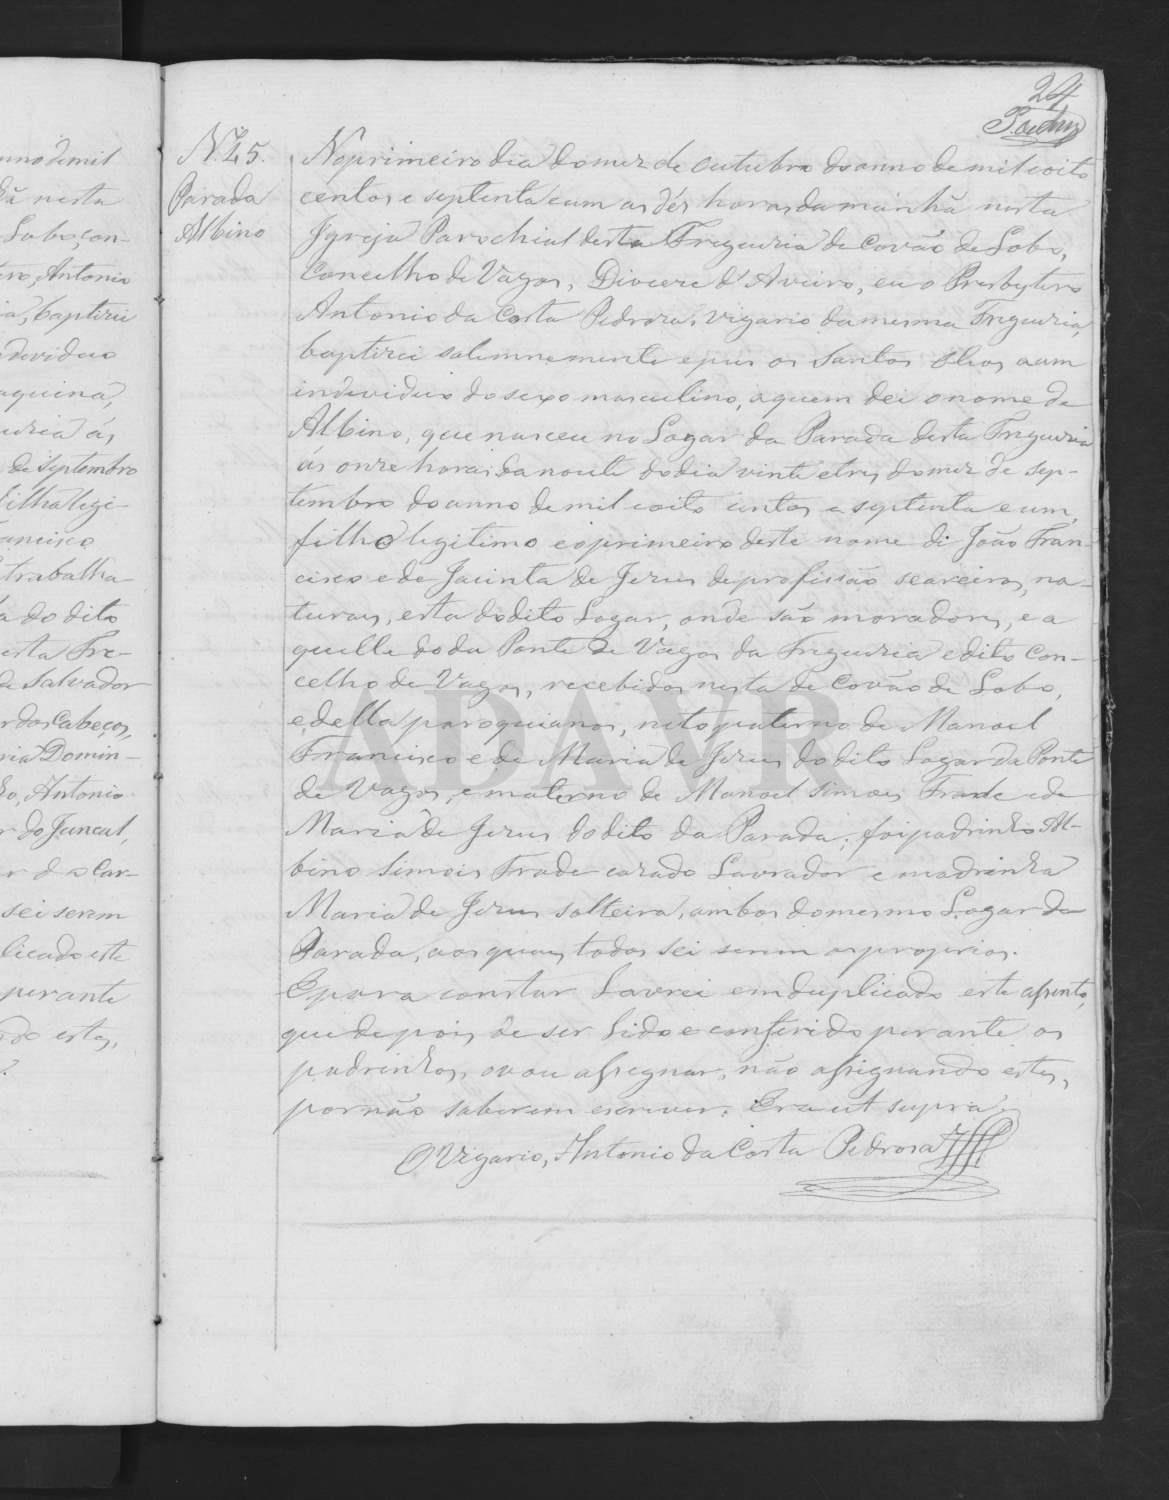 24
N. 45.
Parada
Albino
No primeiro dia do mez de outubro do anno de mil oito
centos e septenta e um as déz horas da manhã nesta
Igreja Parochial desta Freguezia de Covão de Lobo,
Concelho de Vagos, Diocere d'Aveiro, eu o Presbytero
Antonio da Costa Pedroza, Vigario da mesma Freguezia,
baptizei solemnemente e puz os Santos Oleos a um
individuo do sexo masculino, a quem dei o nome de
Albino, que nasceu no Logar da Parada desta Freguezia
ás onze horas da noute do dia vinte e tres do mez de sep-
tembro do anno de mil e oito centos e septenta e um,
filho legitimo e o primeiro deste nome di João Fran-
cisco e de Jacinta de Jezus de profissão seareiros, na-
turaes, esta do dito Logar, onde são moradores, e a
quelle do da Ponte de Vagos da Freguezia e dito Con-
celho de Vagos, recebidos nesta de Covão de Lobo,
e della paroquianos, neto paterno de Manoel
Francisco e de Maria de Jezus do dito Logar da Ponte
de Vagos, e materno de Manoel Simões Frade e de
Maria de Jezus do dito da Parada; foi padrinho Al-
bino Simois Frade cazado Lavrador e madrinha
Maria de Jezus solteira, ambos do mesmo Logar da
Parada, aos quaes todos sei serem os proprios.
E para constar Lavrei em duplicado este assento,
que depois de ser lido e conferido perante os
padrinhos, o vou assignar, não assignando estes,
por não saberem escrever. Era ut supra.
O Vigario, Antonio da Costa Pedroza
ADAVR
anno de mil
nesta
Lobo, con-
Antonio
baptizei
individuo
de septembro
Filha legi-
Francisco
trabalha-
do dito
esta Fre-
de Salvador
dos Cabeços,
Domin-
Antonio
do Juncal,
sei serem
este
perante
estes,